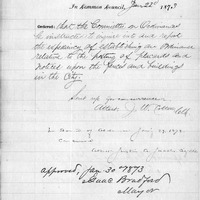 In Common Council, Jan 22d 1873
Ordered: That the Committee on Ordinances
be instructed to inquire into and report
the expediency of establishing an Ordinance
relative to the posting of placards and
notices upon the fences and buildings
in the City.
Sent up for concurrence
Attest,
In Board of Aldermen Jany 1873
Concurred
approved, Jan 30 1873
Isaac Bradford
Mayor